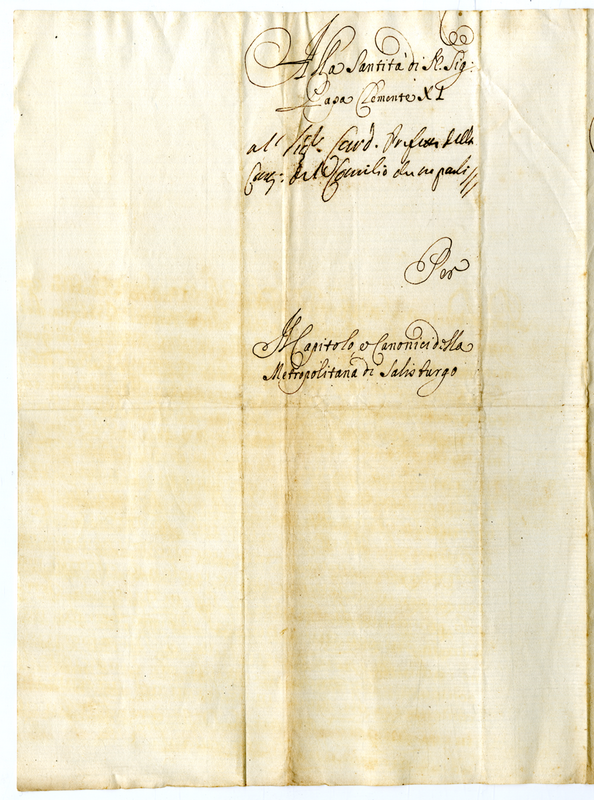 Alla Santità di N. Sig.
Papa Clemente XI
al Sig. Card. Prefetto della
Cong. del Concilio che ne parli
Per
Il Capitolo e Canonici della
Metropolitana di Salisburgo